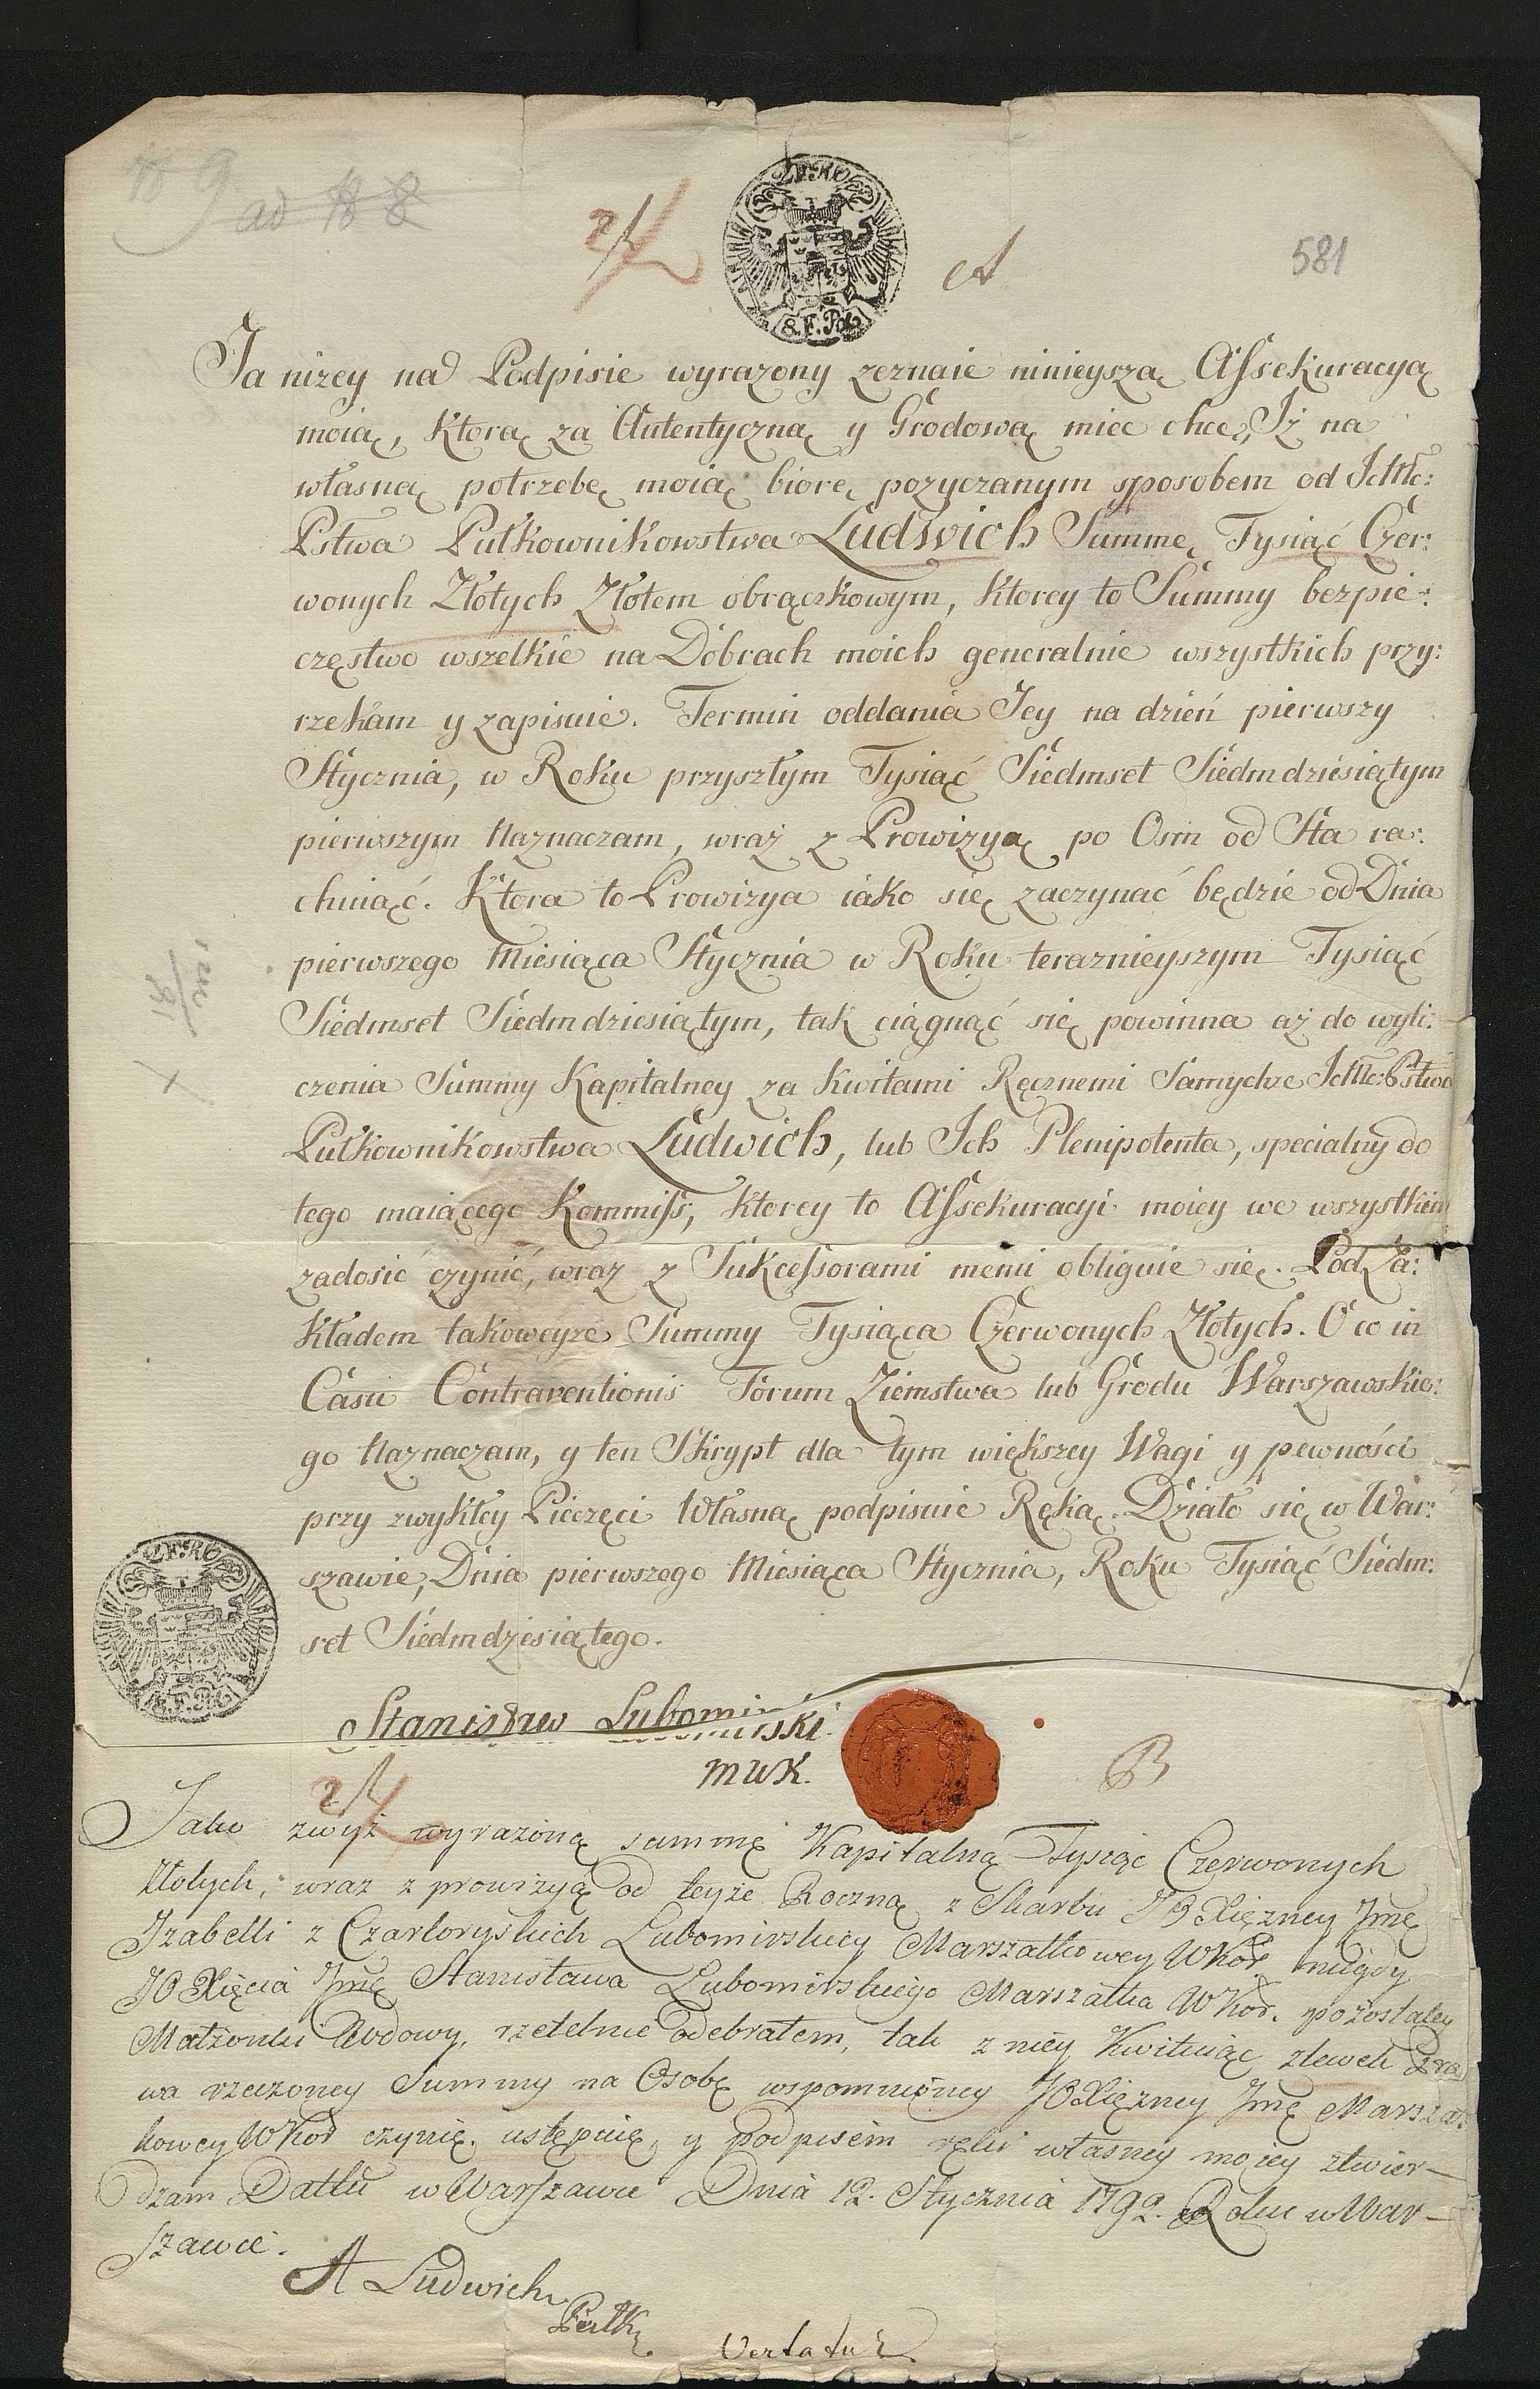 № 9
ad № 8
A
581
Ja nizey na Podpisie wyrazony zeznaie ninieyszą Assekuracyą
moią, Ktorą za Autentyczną y Grodową miec chcę, Jż na
własną potrzebę moią biorę pozyczanym sposobem od JchMć:
Pstwa Pułkownikowstwa Ludwich Summę Tysiąć Czer:
wonych Złotych Złotem obrączkowym, Ktorey to Summy bezpie:
częstwo wszelkie na Dobrach moich generalnie wszystkich przy:
rzekam y zapisuię. Termin oddania Jey na dzień pierwszy
Stycznia, w Roku przyszłym Tysiąć Siedmset Siedmdziesiątym
pierwszym Naznaczam, wraz z Prowizyą po Osm od Sta ra:
chuiąć. Ktora to Prowizya iako się zaczynać będzie od Dnia
pierwszego Miesiąca Stycznia w Roku teraznieyszym Tysiąć
Siedmset Siedmdziesiątym, tak ciągnąć się powinna aż do wyli:
czenia Summy Kapitalney za Kwitami Ręcznemi Samychze JchMć: Pstwa
Pułkownikowstwa Ludwich, lub Jch Plenipotenta, specialny do
tego maiącego Kommiss, Ktorey to Assekuracyi moiey we wszystkiem
zadosić czynić, wraz z Sukcessorami memi obliguię się. Pod Za:
kładem takoweyze Summy Tysiąca Czerwonych Złotych. O co in
Casu Contraventionis Forum Ziemstwa lub Grodu Warszawskie:
go Naznaczam, y ten Skrypt dla tym większey Wagi y pewności
przy zwykłey Pieczęci Własną podpisuię Ręką. Działo się w War:
szawie, Dnia pierwszego Miesiąca Stycznia, Roku Tysiąć Siedm:
set Siedmdziesiątego.
Stanisław Lubomirski
MWK.
B
Jako zwyż wyrazoną summę Kapitalną Tysiąc Czerwonych
Złotych, wraz z prowizyą od teyże Roczną z Skarbu JO Xiężney Jmę
Izabelli z Czartoryskich Lubomirskiey Marszałkowey WKor. niegdy
JO Xięcia Jmę Stanisława Lubomirskiego Marszałka WKor. pozostałey
Małżonki Wdowy, rzetelnie odebrałem, tak z niey Kwituiąc, zlewek Pra
wa rzeczoney Summy na Osobę wspomnioney JO Xiężney Jmę Marszał
kowey WKor czynię, ustępuię, y podpisem ręki własney moiey stwier—
dzam Dattū w Warszawie Dnia 12. Stycznia 1792. Roku w War—
szawie.
A Ludwich
Pułk
Vertatur